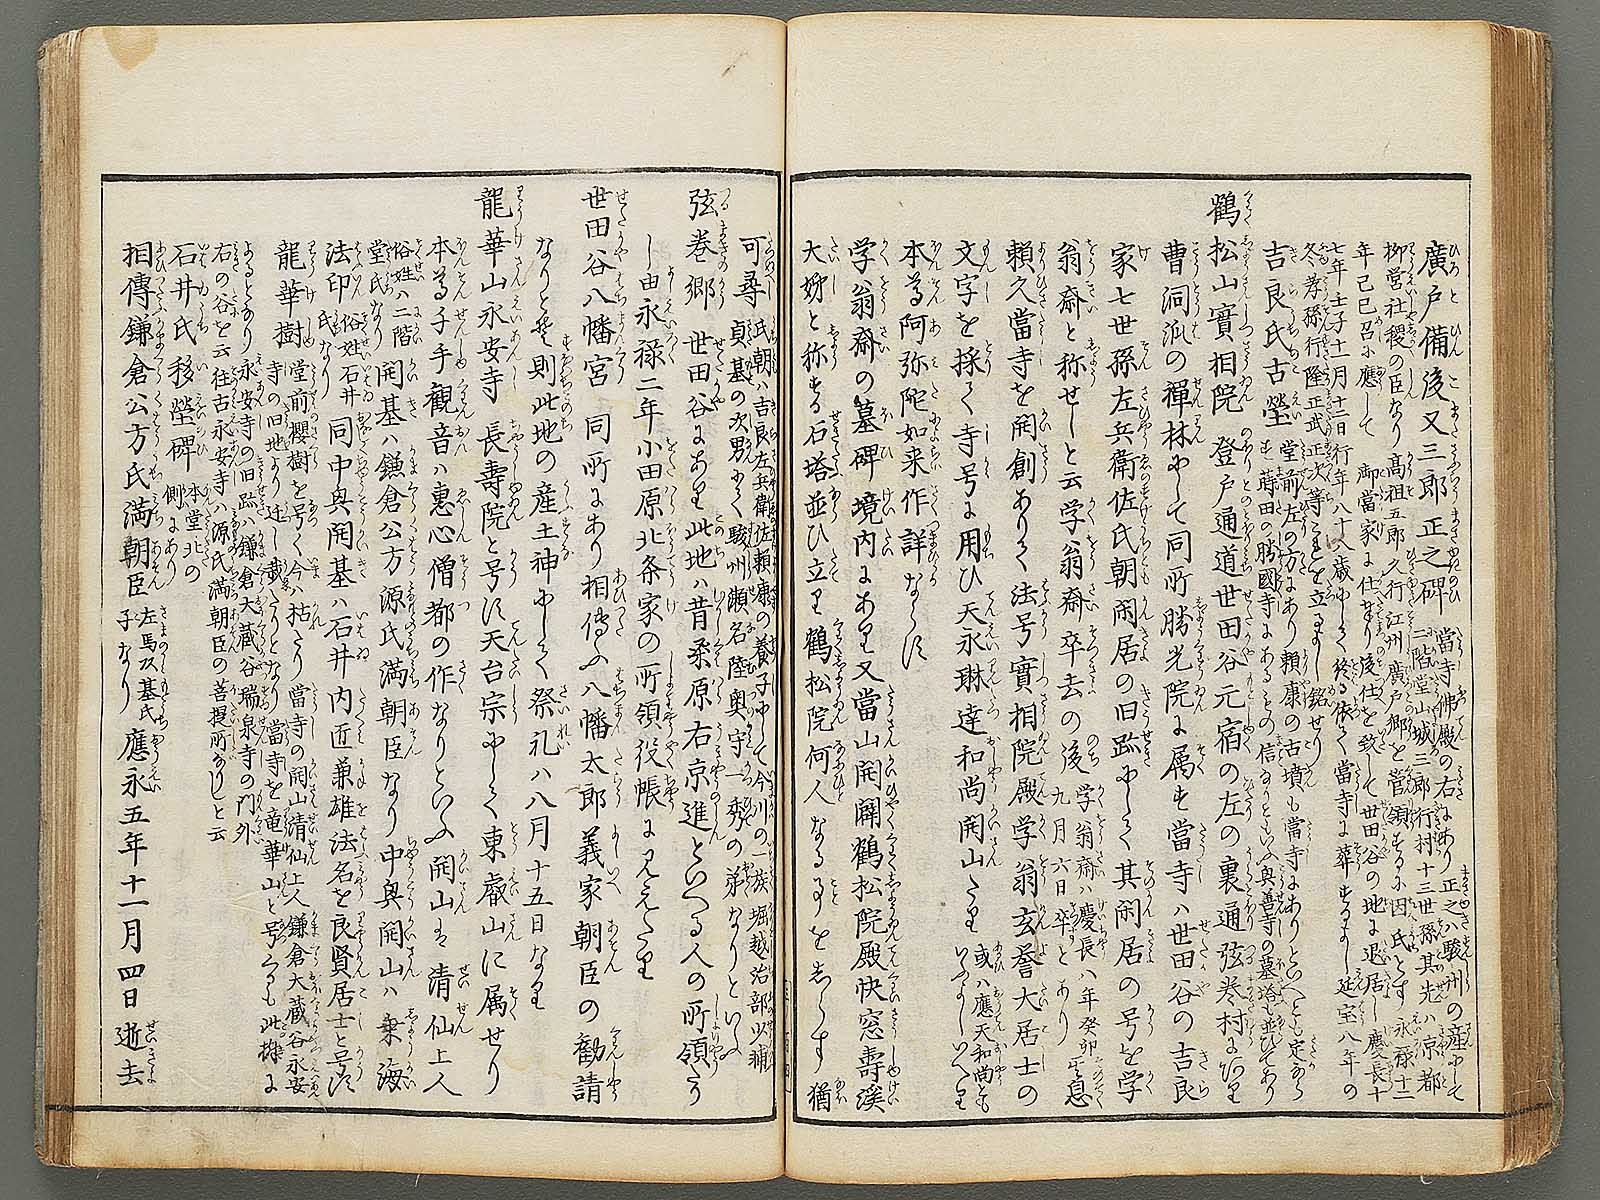 廣戸備後又三郎正之碑 當寺佛殿の右にあり正之ハ駿州の産にして
二階堂山城三郎行村十三世孫其先ハ京都
柳営社稷の臣なり高祖五郎久行江州廣戸郷を管領するに因氏とす永禄十二
年己巳召に應して 御當家に仕なりて後仕を致して世田谷の地に退居し慶長十
七年壬子十一月十二日行年八十八歳にして終る依て當寺に葬するよし延宝八年の
冬孝孫行隆正武正次等これを立るよし銘せり
吉良氏古塋 堂前左の方にあり頼康の古墳も當寺にありといへとも定かならす蒔田の勝國寺にあるもの信なりともいふ與善寺の墓塔も並ひてあり
鶴松山實相院 登戸通道世田谷元宿の左の裏通弦巻村にあり
曹洞派の禅林にして同所勝光院に属す當寺ハ世田谷の吉良
家七世孫左兵衛佐氏朝閑居の旧跡にして其閑居の号を学
翁斎と称せしと云学翁斎卒去の後 学翁斎ハ慶長八年癸卯九月六日卒とあり 其息
頼久當寺を開創ありて法号實相院殿学翁玄誉大居士の
文字を採て寺号に用ひ天永琳達和尚開山たり 或ハ應天和尚ともいふよしいへり
本尊阿弥陀如来作詳ならす
学翁斎の墓碑境内にあり又當山開闢鶴松院殿快窓壽渓
大姉と称する石塔並ひ立り鶴松院何人なる事をしらす猶
可尋 氏朝ハ吉良左兵衛佐頼康の養子にして今川の一族堀越治部少輔
貞基の次男にて駿州瀬名陸奥守一秀の弟なりといふ
弦巻郷 世田谷にあり此地ハ昔柔原右京進といへる人の所領たり
し由永禄二年小田原北条家の所領役帳に見えたり
世田谷八幡宮 同所にあり相傳ふ八幡太郎義家朝臣の勧請
なりとそ則此地の産土神にして祭礼ハ八月十五日なり
龍華山永安寺 長壽院と号す天台宗にして東叡山に属せり
本尊千手觀音ハ恵心僧都の作なりといふ開山を清仙上人
俗姓ハ二階堂氏なり 開基ハ鎌倉公方源氏満朝臣なり中興開山ハ乗海
法印 俗姓石井氏なり 同中興開基ハ石井内匠兼雄法名を良賢居士と号す
龍華樹 堂前櫻樹を号く今ハ枯たり當寺の開山清仙上人鎌倉大蔵谷永安
寺の旧地より迁し栽たりとなり當寺を竜華山と号るも此樹に
よるとなり永安寺の旧跡ハ鎌倉大蔵谷瑞泉寺の門外
右の谷を云往古永安寺ハ源氏満朝臣の菩提所なりしと云
石井氏移塋碑 本堂北の側にあり
相傳鎌倉公方氏満朝臣 左馬头基氏子なり 應永五年十一月四日逝去